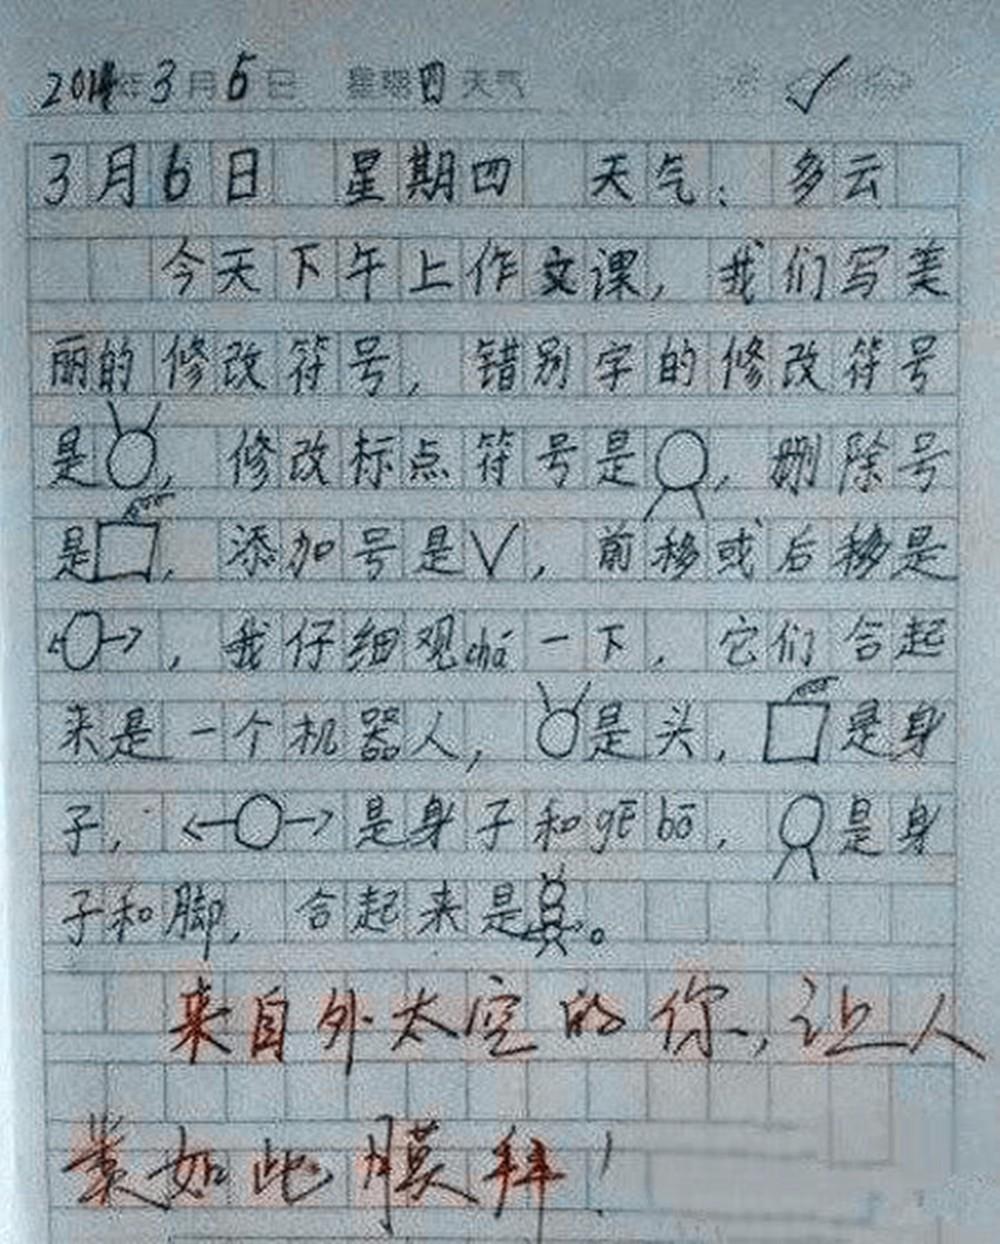 2014年3月6日 星期四 天气 ✓
3月6日 星期四 天气:多云
今天下午上作文课,我们写美
丽的修改符号,错别字的修改符号
是,修改标点符号是,删除号
是,添加号是V,前移或后移是
,我仔细观chá一下,它们合起
来是一个机器人,是头,是身
子,←○→是身子和gē bō,是身
子和脚,合起来是。
来自外太空的你,让人
类如此膜拜!